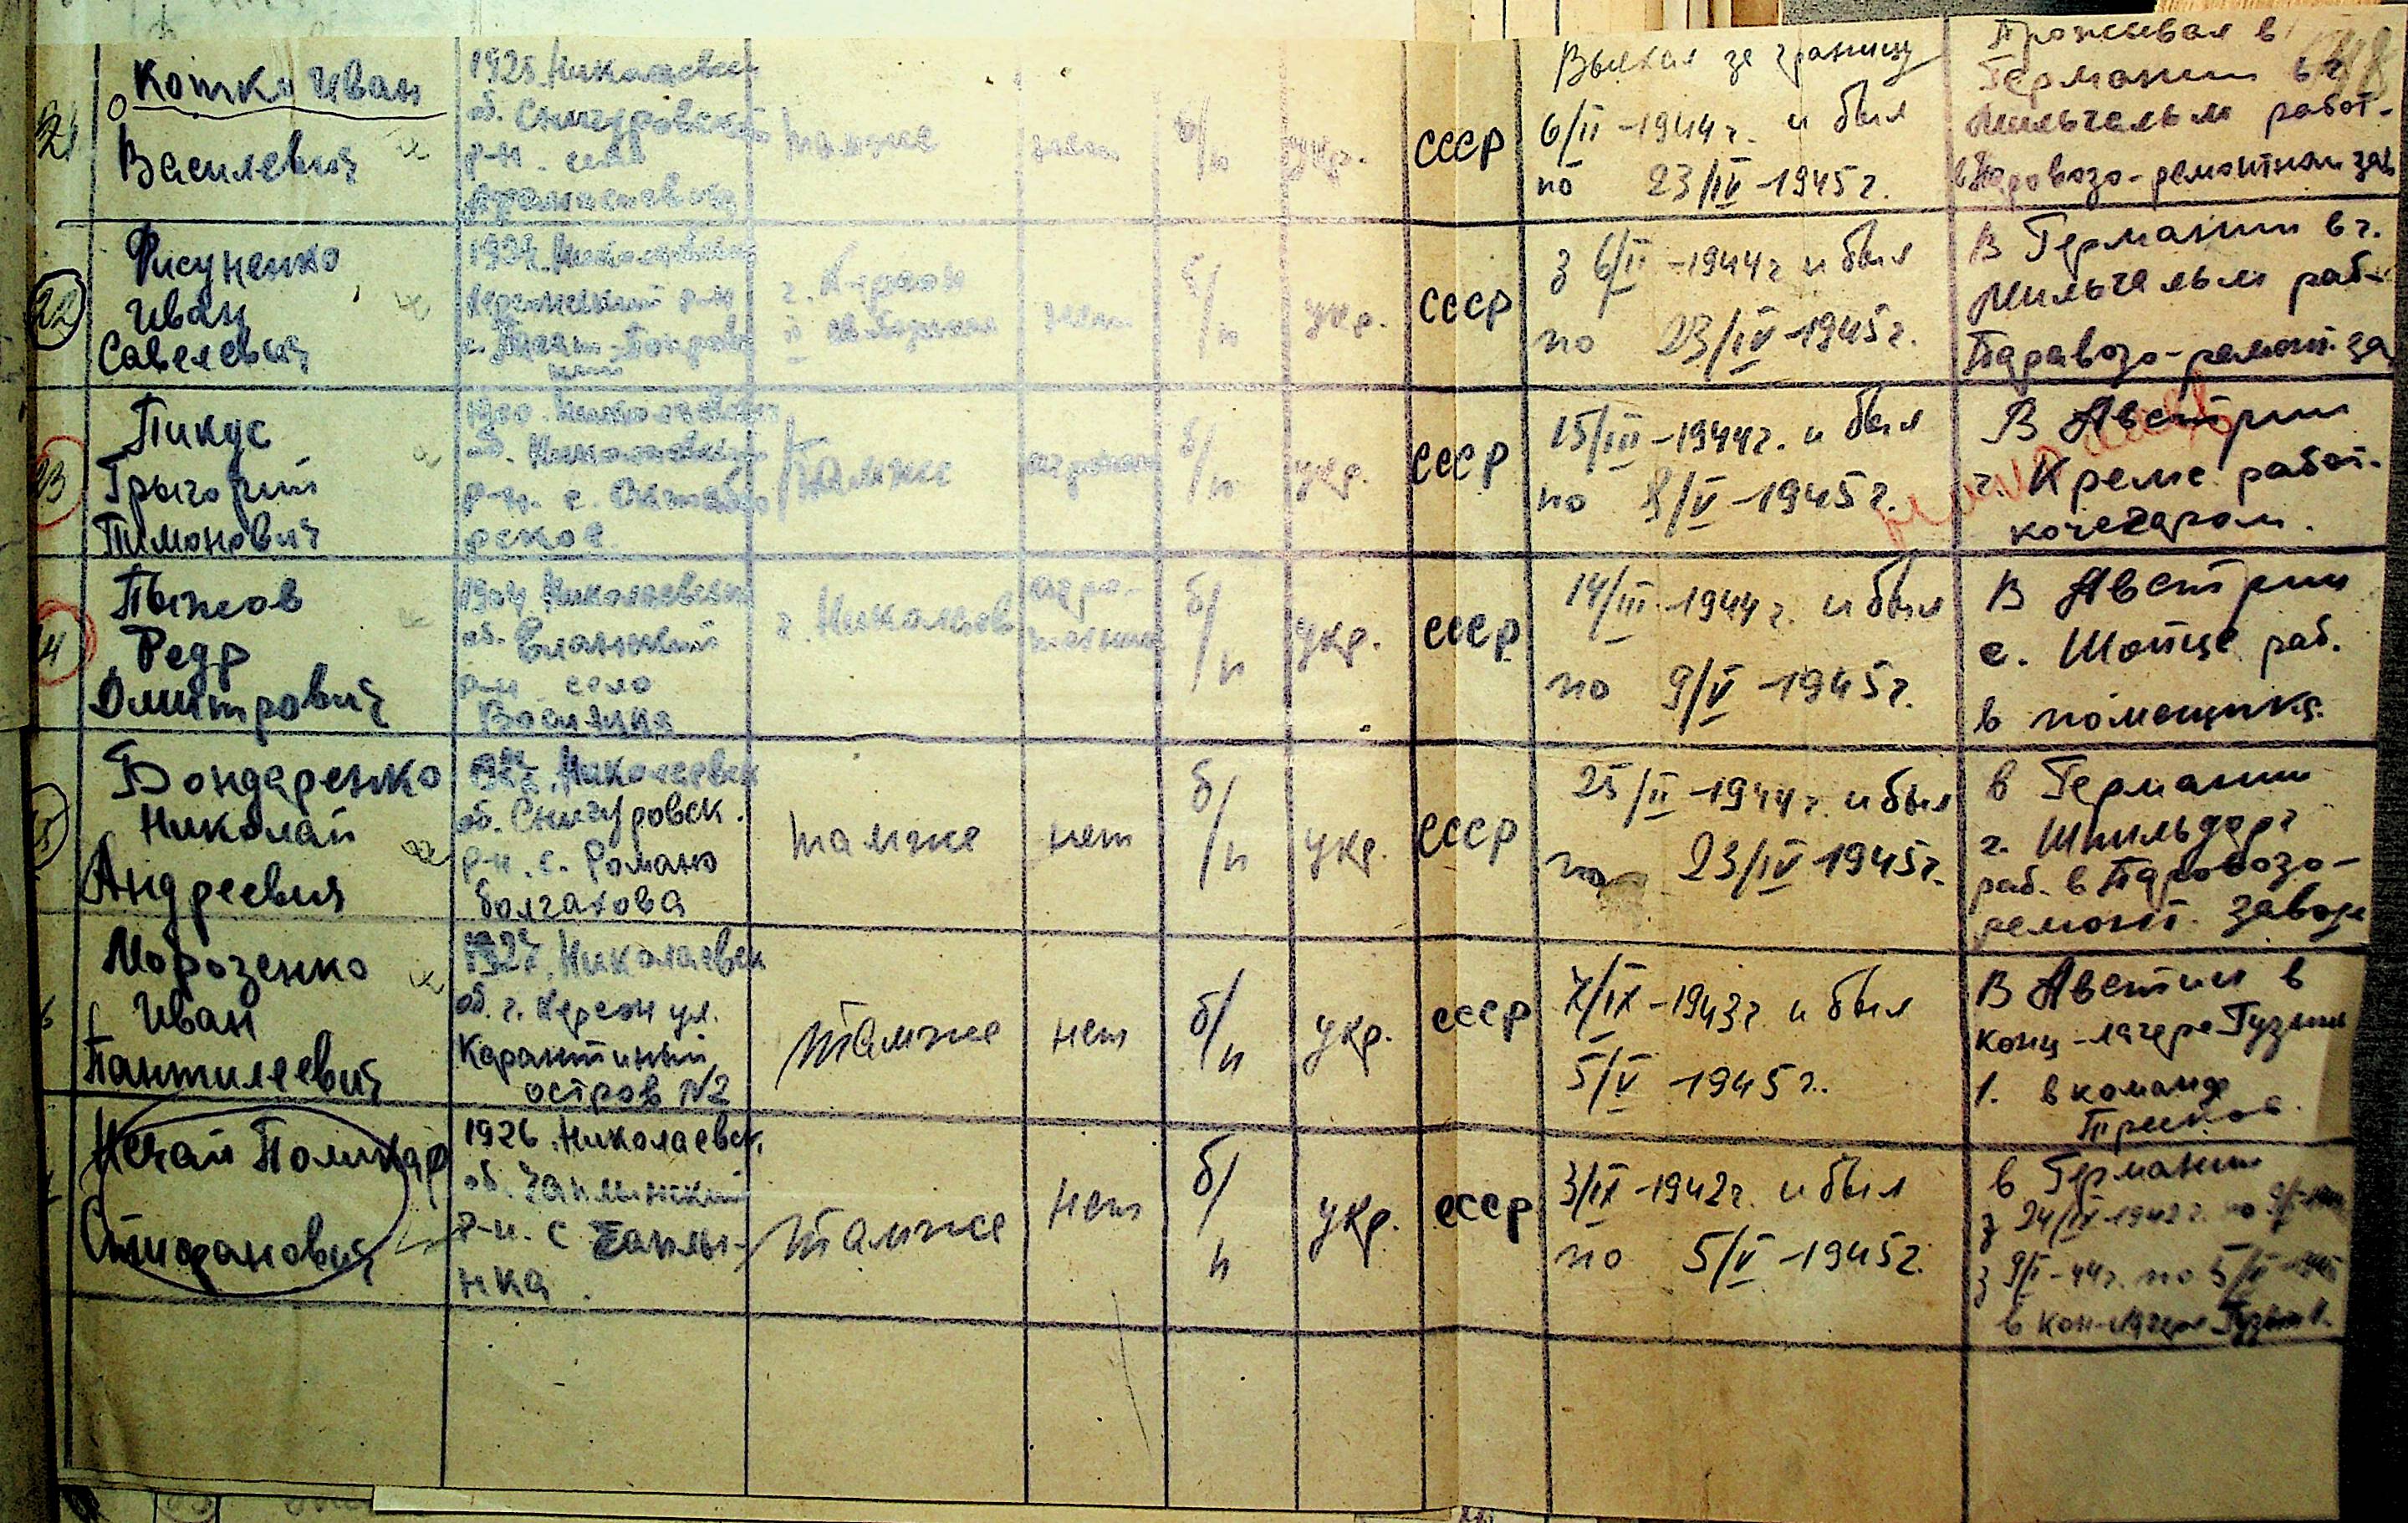 21
Котко Иван
Василевич
1925 Николаевск
об. Снигуровский
р-н. село
тамже
нет
б/п
укр.
СССР
Выехал за границу
6/II-1944г. и был
по 23/IV-1945г.
Проживал в
Германии в г.
Мильгельм работ-
в Паровозо-ремонтном зав
22
Рисуненко
Иван
Савелевич
г. Херсон
нет
б/п
укр.
СССР
з 6/II-1944г и был
по 23/IV-1945г.
В Германии в г.
Мильгельм раб-
Паравозо-ремонт. за
23
Пикус
Грыгорий
Тимонович
1900. Николаевск
об. Николаевский
р-н. с.
рское
Тамже
агроном
б/п
укр.
СССР
15/III-1944г. и был
по 8/V-1945г.
В Австрии
г. Кремс работ.
кочегаром.
Пыжов
Федр
Дмитрович
1904 Николаевск
об. Еланский
р-н село
г. Николаев
агро-
б/п
укр.
СССР
14/III-1944г. и был
по 9/V-1945г.
В Австрии
с. Шотце раб.
в помещика.
Бондаренко
Николай
Андреевич
1927. Николаевск
об. Снигуровск.
р-н. с. Романо
болгахова
тамже
нет
б/п
укр.
СССР
25/II-1944г. и был
по 23/IV 1945г.
в Германии
г. Шпильдорг
раб. в Паровозо-
ремонт. заводе
6
Морозенко
Иван
Пантилеевич
1927. Николаевск
об. г. Херсон ул.
Карантиный
остров N2
Тамже
нет
б/п
укр.
СССР
7/IX-1943г и был
5/V 1945г.
В Австии в
конц-лагере Гузин
1. в команде
Нечай Поликар
Стифанович
1926. Николаевск.
об. Чаплинский
р-н. с Чаплы-
нка.
Тамже
нет
б/п
укр.
СССР
3/IX-1942г. и был
по 5/V-1945г.
в Германии
з 24/IX-1942г. по
з 9/I-44г. по 5/V-1945
в кон-лагере Гузин 1.